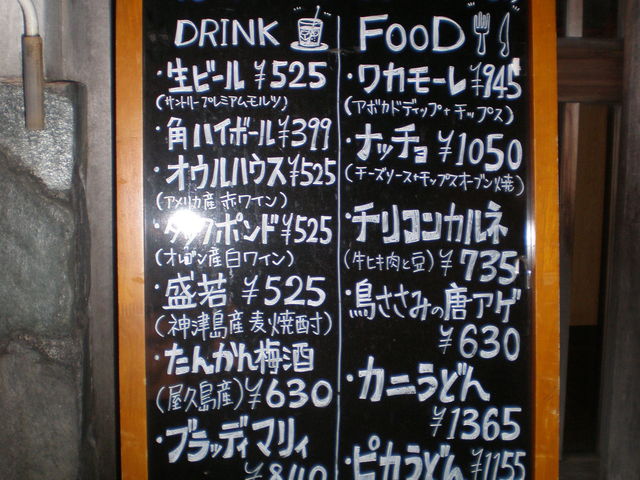 DRINK
・生ビール ¥525
(サントリープレミアムモルツ)
・角ハイボール ¥399
・オウルハウス ¥525
(アメリカ産 赤ワイン)
・ダックポンド ¥525
(オレゴン産 白ワイン)
・盛若 ¥525
(神津島産 麦焼酎)
・たんかん梅酒
(屋久島産) ¥630
・ブラッディマリィ
¥840
FOOD
・ワカモーレ ¥945
(アボカドディップ+チップス)
・ナッチョ ¥1050
(チーズソース+チップスオーブン焼)
・チリコンカルネ
(牛ヒキ肉と豆) ¥735
・鳥ささみの唐アゲ
¥630
・カニうどん
¥1365
・ピカうどん ¥1155